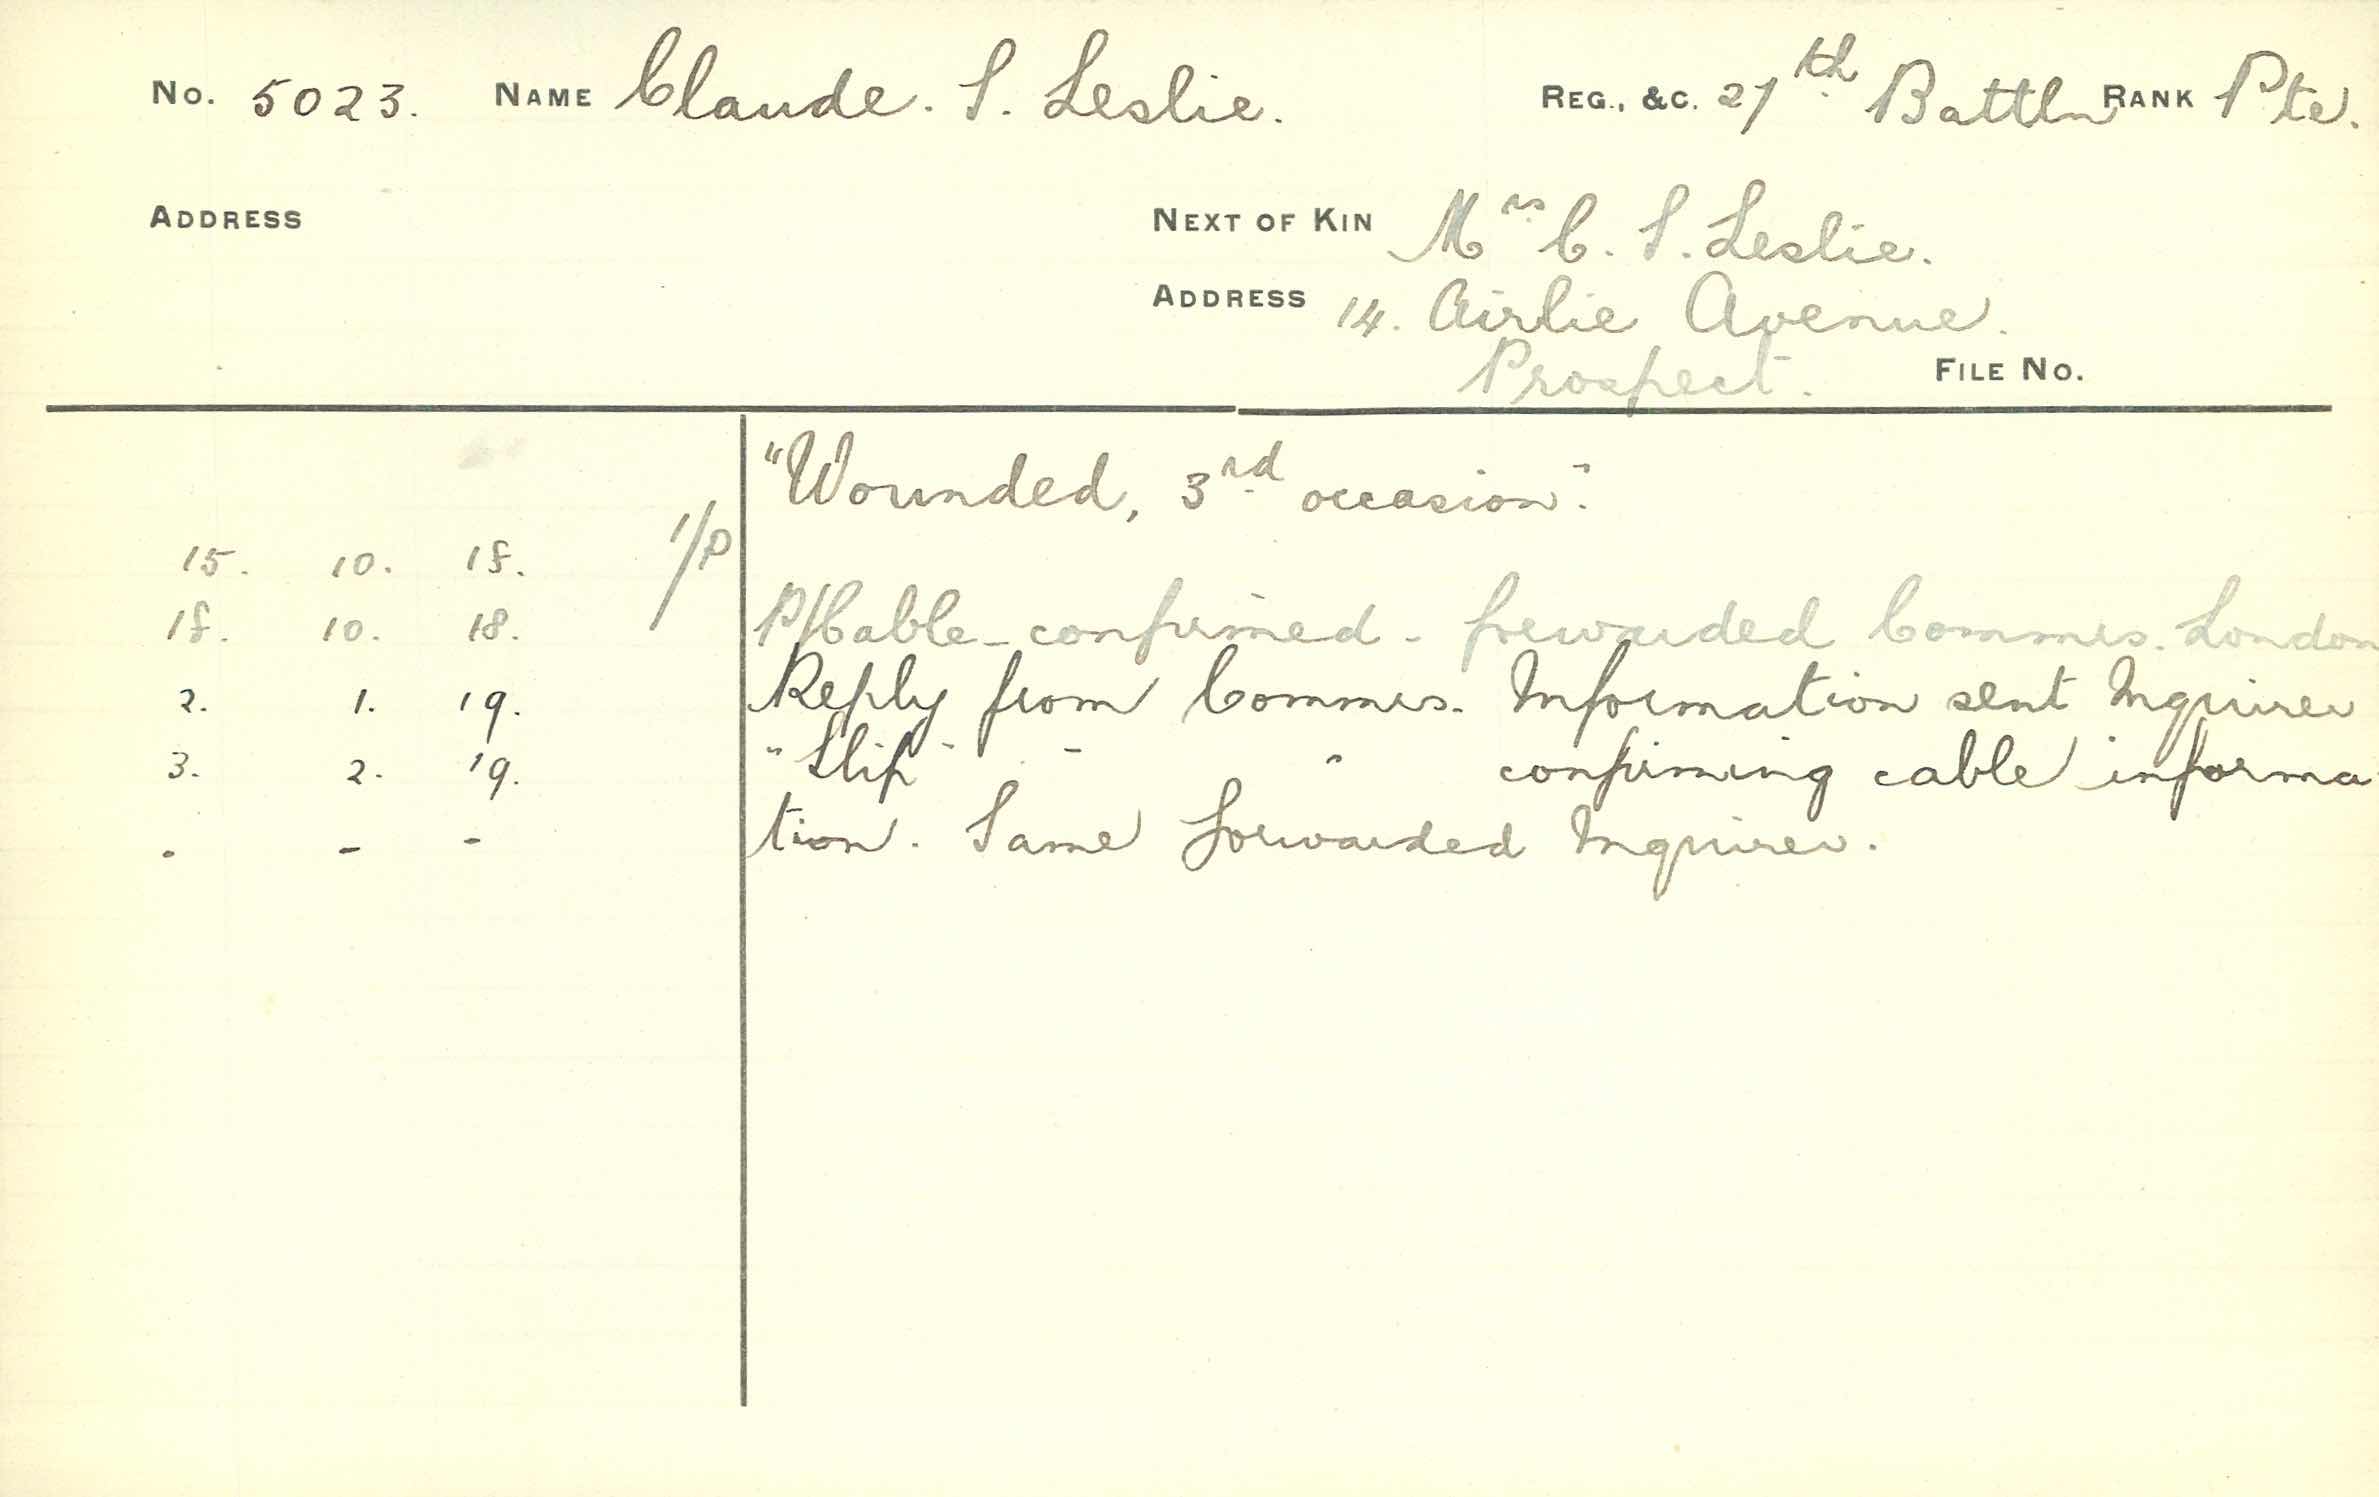 No. 5023. NAME Claude. S. Leslie. REG., &C. 27th Battln RANK Pte.
ADDRESS NEXT OF KIN Mrs C. S. Leslie.
ADDRESS 14. Airlie Avenue.
Prospect. FILE No.
"Wounded, 3rd occasion".
15. 10. 18. 1/P
18. 10. 18. P/Cable - confirmed - forwarded Commrs. London
2. 1. 19. Reply from Commrs. Information sent Inquirer
3. 2. 19. " Slip " " " confirming cable informa
- - - tion. Same forwarded Inquirer.